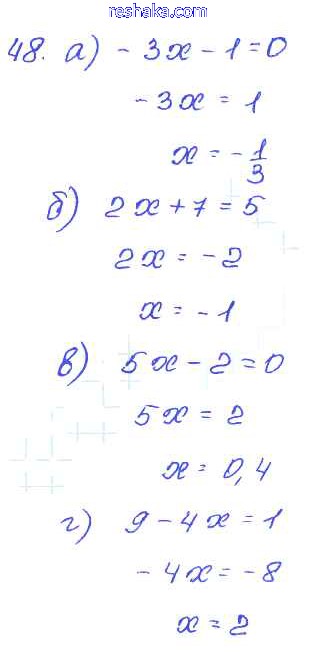 reshaka.com
48. а) - 3x - 1 = 0
- 3x = 1
x = - 1/3
б) 2x + 7 = 5
2x = - 2
x = - 1
в) 5x - 2 = 0
5x = 2
x = 0,4
г) 9 - 4x = 1
- 4x = - 8
x = 2